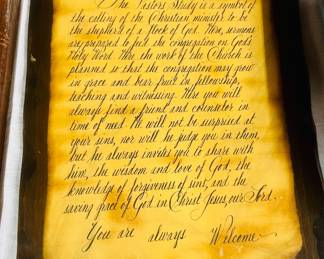 The Pastors Study is a symbol of
the calling of the Christian minister to be
the shepherd of a flock of God. Here, sermons
are prepared to feed the congregation on God's
Holy Word. Here the work of the Church is
planned so that the congregation may grow
in grace and bear fruit in fellowship,
teaching and witnessing. Here you will
always find a friend and counselor in
time of need. He will not be surprised at
your sins, nor will he judge you in them,
but he always invites you to share with
him, the wisdom and love of God, the
knowledge of forgiveness of sins, and the
saving grace of God in Christ Jesus our Lord.
You are always Welcome